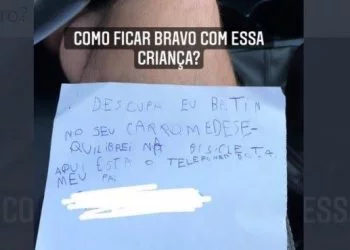 COMO FICAR BRAVO COM ESSA
CRIANÇA?
DESCUPA EU BATIN
NO SEU CARRO ME DESE-
QUILIBREI NA BISICLETA
AQUI ESTA O TELEFONE DO
MEU PAI